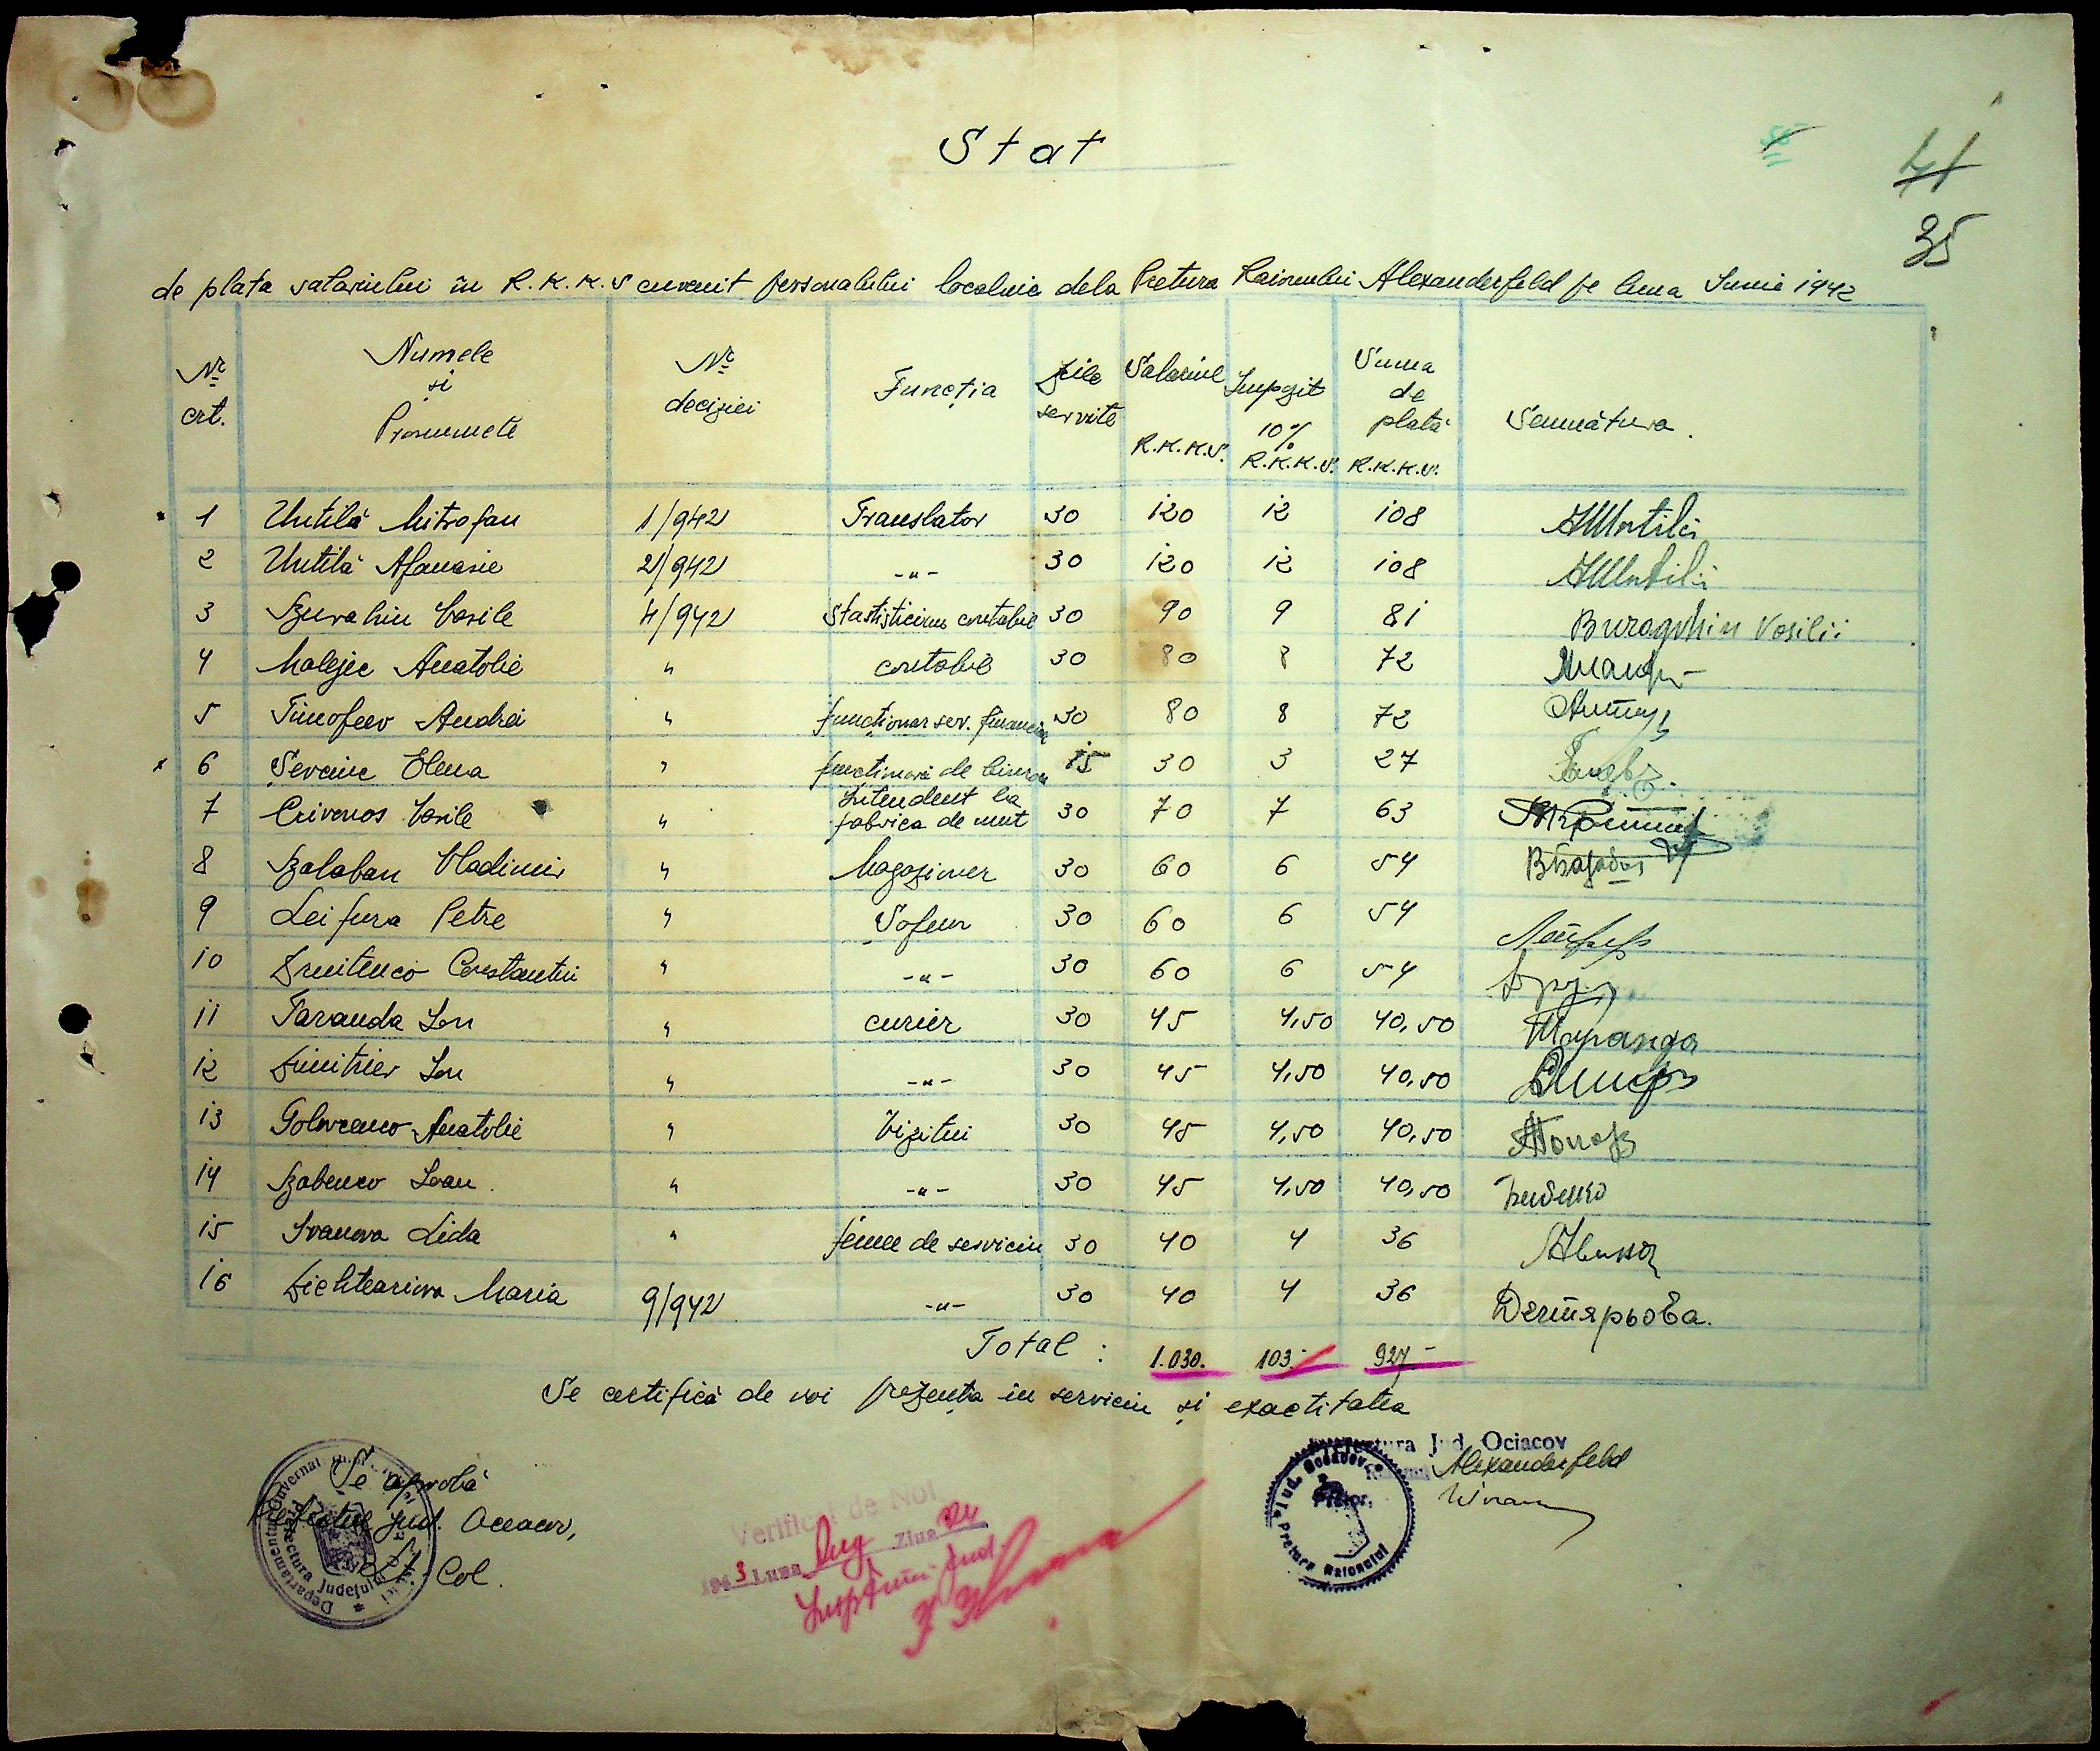 Stat
41
35
de plata salariului în R.K.K.S cuvenit personalului localnic dela Pretura Raionului Alexanderfeld pe luna Iunie 1942
Nr. crt. Numele și Pronumele Nr. deciziei Funcția Zile servite Salariul R.K.K.S. Impozit 10% R.K.K.S. Suma de plată R.K.K.S. Semnătura.
1 Untilă Mitrofan 1/942 Translator 30 120 12 108 Untilă
2 Untilă Afanasie 2/942 -"- 30 120 12 108 Untilă
3 Burahin Vasile 4/942 Stastisticieni contabil 30 90 9 81 Buraguhin Vasilii
4 Malejic Anatolie " contabil 30 80 8 72
5 Timofeev Andrei " funcționar ser. financiar 30 80 8 72
6 Șevciuc Elena " funcționară de birou 15 30 3 27
7 Crivonos Vasile " Intendent la fabrica de unt 30 70 7 63
8 Balaban Vladimir " Magaziner 30 60 6 54
9 Leifura Petre " Șofeur 30 60 6 54
10 Dmitenco Constantin " -"- 30 60 6 54
11 Taranda Ion " curier 30 45 4,50 40,50 Таранда
12 Dimitriev Ion " -"- 30 45 4,50 40,50
13 Golovcenco Anatolie " Vizitiu 30 45 4,50 40,50
14 Babenco Ioan " -"- 30 45 4,50 40,50
15 Ivanova Lida " femee de serviciu 30 40 4 36
16 Dichteariova Maria 9/942 -"- 30 40 4 36 Дегтярьова.
Total : 1.030. 103.- 927-
Se certifică de noi prezența în serviciu și exactitatea
Prefectura Jud. Ociacov
Alexanderfeld
Pretor,
Jud. Oceacov
Pretura Raionului
Se aprobă
Prefectul jud. Oceacov,
Lt. Col.
Prefectura Județului
Verificat de Noi
1943 Luna Aug Ziua 24